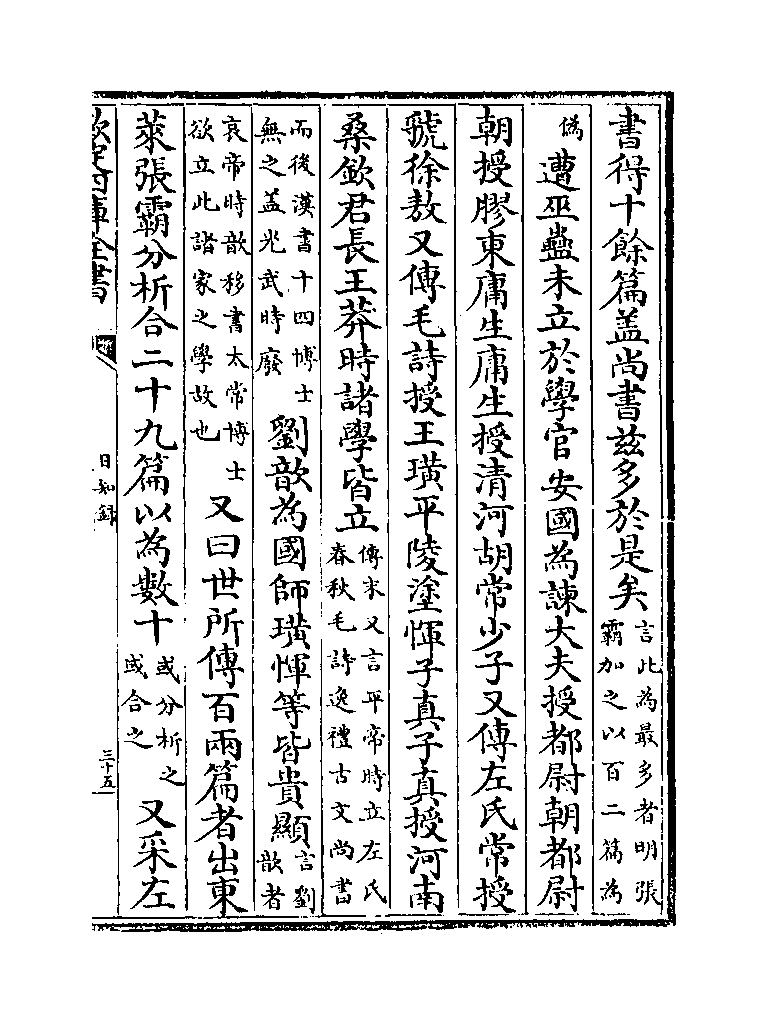 書得十餘篇盖尚書兹多於是矣言此為最多者明張霸加之以百二篇為
偽遭巫蠱未立於學官安國為諫大夫授都尉朝都尉
朝授膠東庸生庸生授清河胡常少子又傳左氏常授
虢徐敖又傳毛詩授王璜平陵塗惲子真子真授河南
桑欽君長王莽時諸學皆立傳末又言平帝時立左氏春秋毛詩逸禮古文尚書
而後漢書十四博士無之盖光武時廢劉歆為國師璜惲等皆貴顯言劉歆者
哀帝時歆移書太常博士欲立此諸家之學故也又曰世所傳百兩篇者出東
萊張霸分析合二十九篇以為數十或分析之或合之又采左
欽定四庫全書
日知錄
三十五